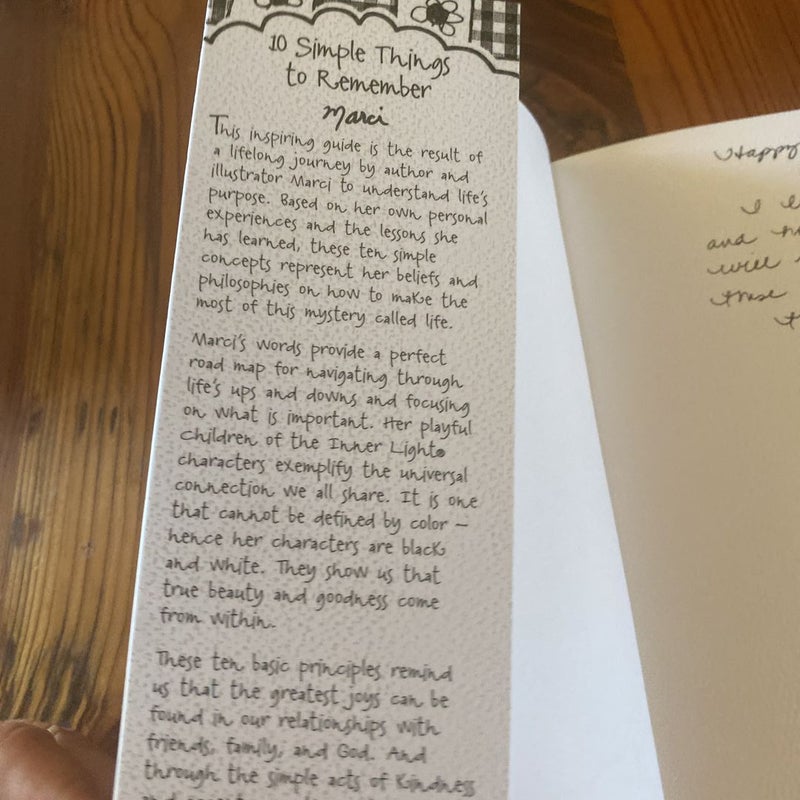 10 Simple Things
to Remember
Marci
This inspiring guide is the result of
a lifelong journey by author and
illustrator Marci to understand life's
purpose. Based on her own personal
experiences and the lessons she
has learned, these ten simple
concepts represent her beliefs and
philosophies on how to make the
most of this mystery called life.
Marci's words provide a perfect
road map for navigating through
life's ups and downs and focusing
on what is important. Her playful
Children of the Inner Light®
characters exemplify the universal
connection we all share. It is one
that cannot be defined by color —
hence her characters are black
and white. They show us that
true beauty and goodness come
from within.
These ten basic principles remind
us that the greatest joys can be
found in our relationships with
friends, family, and God. And
through the simple acts of kindness
Happy
I
and
will
these